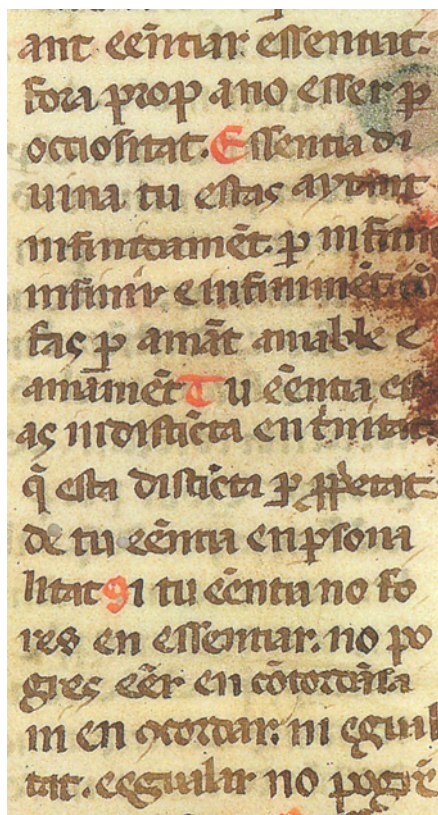 ant eēntiar essentiat.
fora prop ano esser ꝑ
occiositat. Essentia di
uina tu estas aytant
infinidamēt. ꝑ infinit
infinir e infinimēt cō
fas ꝑ amāt amable e
amamēt Tu eēntia est
as indisticta en t̄nitat
q̄ esta disticta ꝑ ꝓpetat
de tu eēntia en ꝑsona
litat Si tu eēntia no fo
res en essentiar. no po
gres eēr en cōcordāsa
ni en ꝯcordar. ni egual
tat. eegualar no pogrē